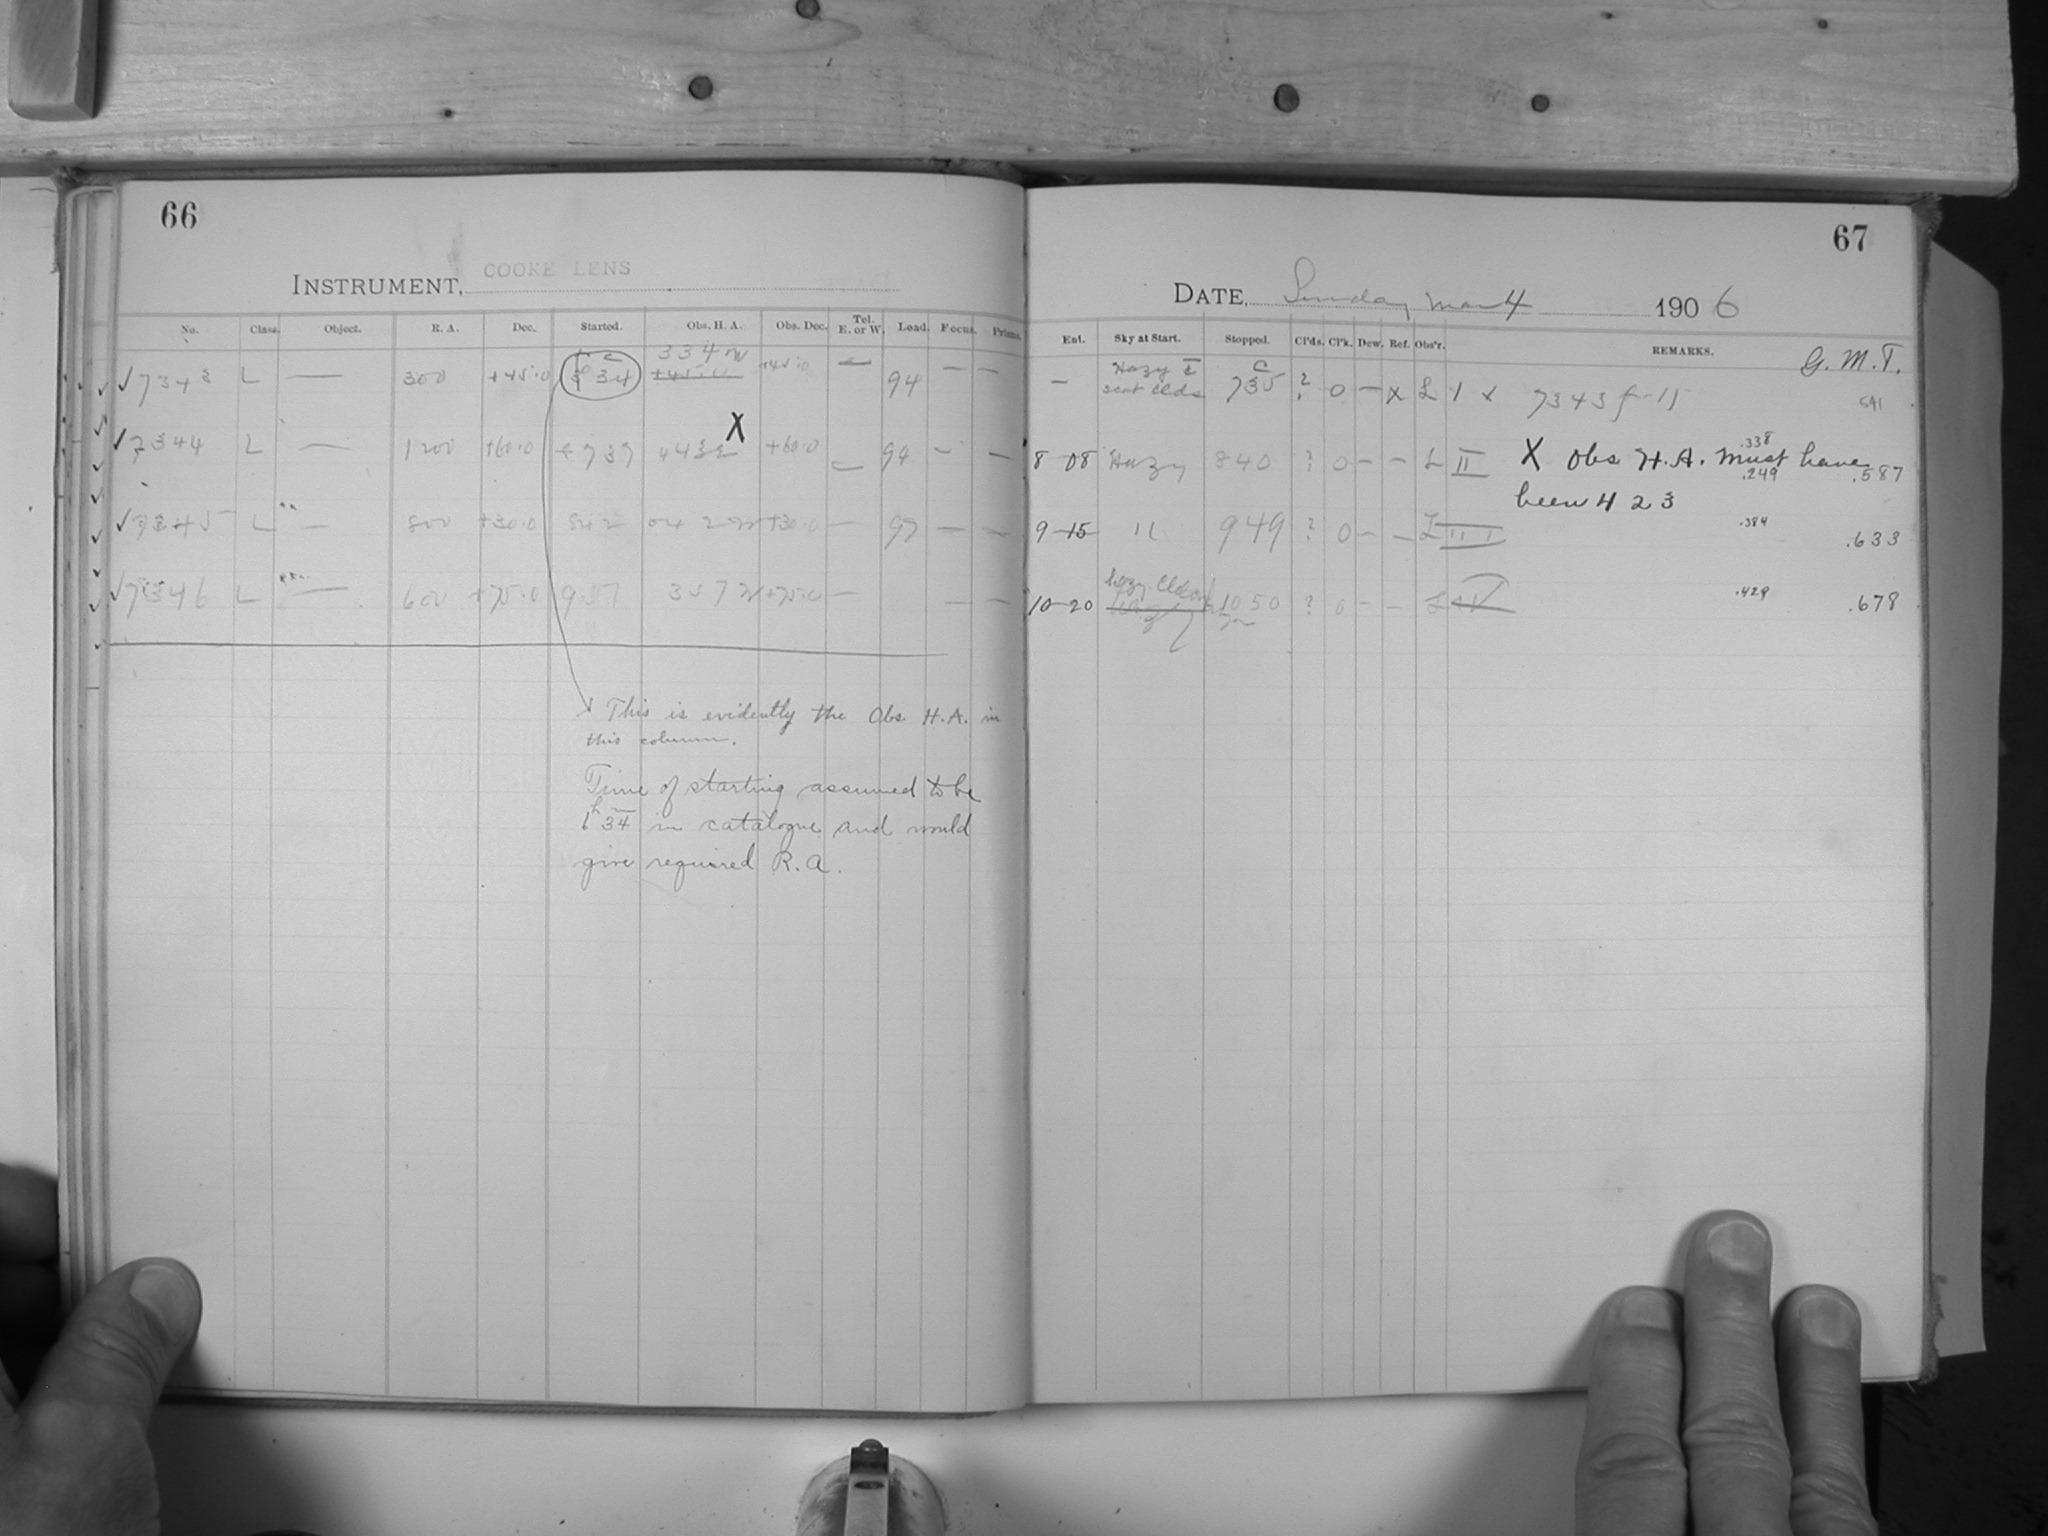 66
INSTRUMENT, COOKE LENS
No. Class. Object. R. A. Dec. Started. Obs. H. A. Obs. Dec. Tel. E. or W. Load. Focus. Prisms.
334 W
✓7343 L — 300 +45.0 334 +45.0 +45.0 — 94 — —
X
✓7344 L — 1200 +60.0 739 +60.0 — 94 — —
✓7345 L — 800 +30.0 842 04 2 W +30.0 — 97 — —
✓7346 L — 600 +75.0 957 357 W +75.0 — — —
x This is evidently the Obs. H.A. in
this column.
Time of starting assumed to be
6h 34m in catalogue and would
give required R.A.
67
DATE, Sunday Mar 4 1906
Ent. Sky at Start. Stopped. Cl'ds. Cl'k. Dew. Ref. Obs'r. REMARKS. G.M.T.
— Hazy c̄ scat clds 735 ? 0 — x L I x 7343 f-15 541
8-08 Hazy 840 ? 0 — — L II X Obs H.A. must have .338 .249 .587
been 4 23
9-15 " 949 ? 0 — — L III .384 .633
10-20 Hazy 1050 ? 0 — — L IV .429 .678